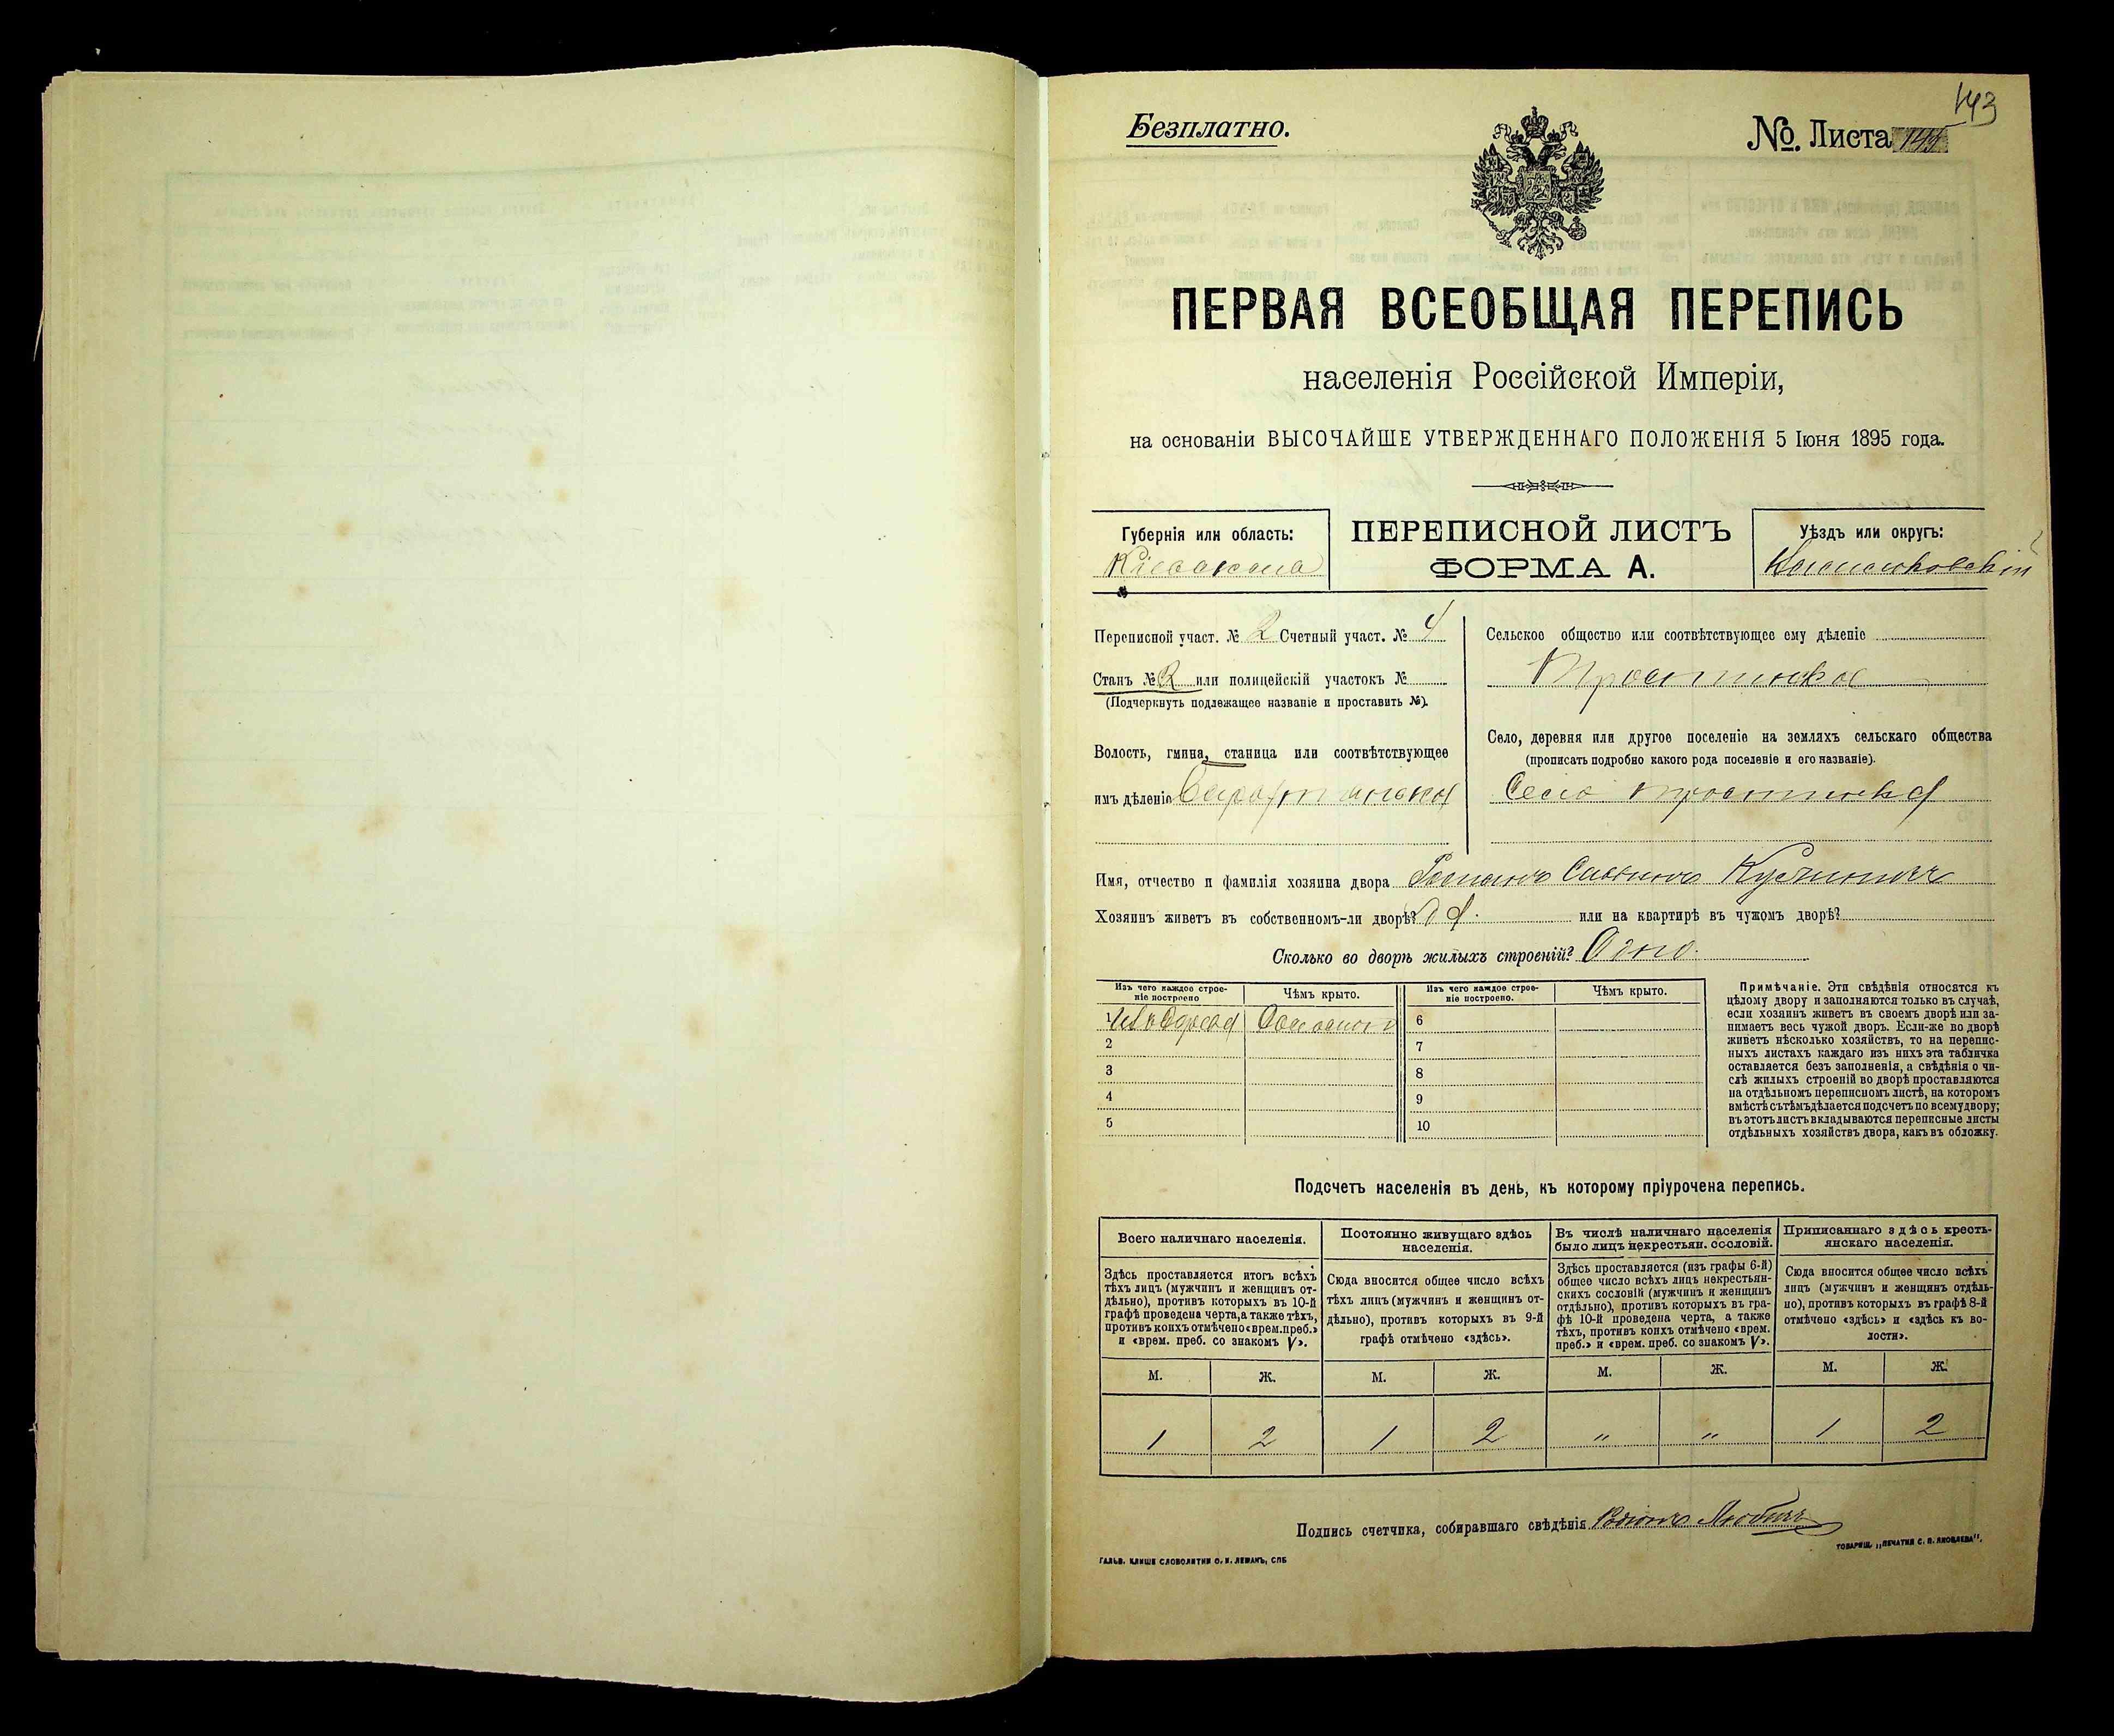 143
Безплатно.
№. Листа 145
ПЕРВАЯ ВСЕОБЩАЯ ПЕРЕПИСЬ
населенія Россійской Имперіи,
на основаніи ВЫСОЧАЙШЕ УТВЕРЖДЕННАГО ПОЛОЖЕНІЯ 5 Іюня 1895 года.
Губернія или область:
Кіевская
ПЕРЕПИСНОЙ ЛИСТЪ
ФОРМА А.
Уѣздъ или округъ:
Васильковскій
Переписной участ. № 2 Счетный участ. № 4
Станъ № 2 или полицейскій участокъ №
(Подчеркнуть подлежащее названіе и проставить №).
Волость, гмина, станица или соотвѣтствующее
имъ дѣленіе
Сельское общество или соотвѣтствующее ему дѣленіе
Тростинское
Село, деревня или другое поселеніе на земляхъ сельскаго общества
(прописать подробно какого рода поселеніе и его названіе).
Село Тростинка
Имя, отчество и фамилія хозяина двора Романъ Савинъ
Хозяинъ живетъ въ собственномъ-ли дворѣ? Да. или на квартирѣ въ чужомъ дворѣ?
Сколько во дворѣ жилыхъ строеній? Одно.
Изъ чего каждое строе-
ніе построено
Чѣмъ крыто.
Изъ чего каждое строе-
ніе построено.
Чѣмъ крыто.
1 Изъ дерева Соломой 6
2 7
3 8
4 9
5 10
Примѣчаніе. Эти свѣдѣнія относятся къ
цѣлому двору и заполняются только въ случаѣ,
если хозяинъ живетъ въ своемъ дворѣ или за-
нимаетъ весь чужой дворъ. Если-же во дворѣ
живетъ нѣсколько хозяйствъ, то на перепис-
ныхъ листахъ каждаго изъ нихъ эта табличка
оставляется безъ заполненія, а свѣдѣнія о чи-
слѣ жилыхъ строеній во дворѣ проставляются
на отдѣльномъ переписномъ листѣ, на которомъ
вмѣстѣ съ тѣмъ дѣлается подсчетъ по всему двору;
въ этотъ листъ вкладываются переписные листы
отдѣльныхъ хозяйствъ двора, какъ въ обложку.
Подсчетъ населенія въ день, къ которому пріурочена перепись.
Всего наличнаго населенія.
Здѣсь проставляется итогъ всѣхъ
тѣхъ лицъ (мужчинъ и женщинъ от-
дѣльно), противъ которыхъ въ 10-й
графѣ проведена черта, а также тѣхъ,
противъ коихъ отмѣчено «врем. преб.»
и «врем. преб. со знакомъ V».
Постоянно живущаго здѣсь
населенія.
Сюда вносится общее число всѣхъ
тѣхъ лицъ (мужчинъ и женщинъ от-
дѣльно), противъ которыхъ въ 9-й
графѣ отмѣчено «здѣсь».
Въ числѣ наличнаго населенія
было лицъ некрестьян. сословій.
Здѣсь проставляется (изъ графы 6-й)
общее число всѣхъ лицъ некрестьян-
скихъ сословій (мужчинъ и женщинъ
отдѣльно), противъ которыхъ въ гра-
фѣ 10-й проведена черта, а также
тѣхъ, противъ коихъ отмѣчено «врем.
преб.» и «врем. преб. со знакомъ V».
Приписаннаго здѣсь кресть-
янскаго населенія.
Сюда вносится общее число всѣхъ
лицъ (мужчинъ и женщинъ отдѣль-
но), противъ которыхъ въ графѣ 8-й
отмѣчено «здѣсь» и «здѣсь къ во-
лости».
М. Ж. М. Ж. М. Ж. М. Ж.
1 2 1 2 " " 1 2
Подпись счетчика, собиравшаго свѣдѣнія
ГАЛЬВ. КЛИШЕ СЛОВОЛИТНИ О. И. ЛЕМАНЪ, СПБ
ТОВАРИЩ. „ПЕЧАТНЯ С. П. ЯКОВЛЕВА".